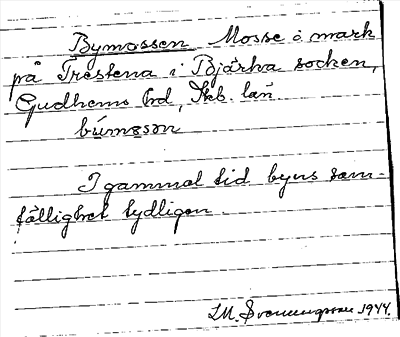 Bymossen Mosse å mark
på Trestena i Bjärka socken,
Gudhems hd, Skb. län
búmɑsən
I gammal tid byns sam-
fällighet tydligen.
1944.